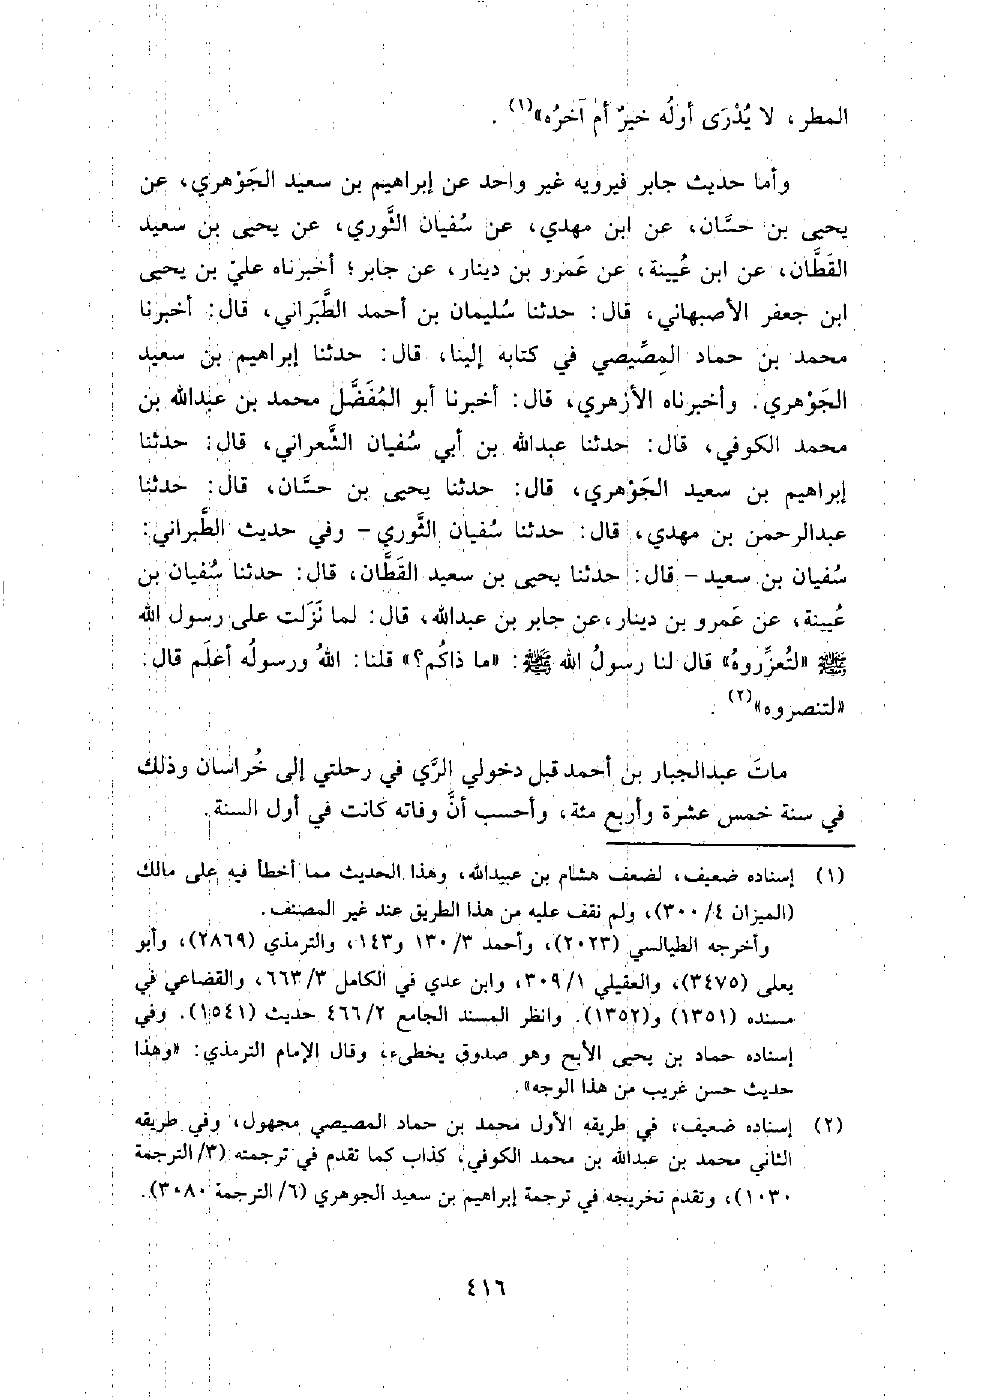 المطر، لا يُدْرَى أولُه خيرٌ أم آخرُه»(١).
وأما حديث جابر فيرويه غير واحد عن إبراهيم بن سعيد الجَوْهري، عن
يحيى بن حسَّان، عن ابن مهدي، عن سُفيان الثَّوري، عن يحيى بن سعيد
القَطَّان، عن ابن عُيينة، عن عَمرو بن دينار، عن جابر؛ أخبرناه عليّ بن يحيى
ابن جعفر الأصبهاني، قال: حدثنا سُليمان بن أحمد الطَّبَراني، قال: أخبرنا
محمد بن حماد المِصِّيصي في كتابه إلينا، قال: حدثنا إبراهيم بن سعيد
الجَوْهري. وأخبرناه الأزهري، قال: أخبرنا أبو المُفَضَّل محمد بن عبدالله بن
محمد الكوفي، قال: حدثنا عبدالله بن أبي سُفيان الشَّعراني، قال: حدثنا
إبراهيم بن سعيد الجَوْهري، قال: حدثنا يحيى بن حسَّان، قال: حدثنا
عبدالرحمن بن مهدي، قال: حدثنا سُفيان الثَّوري – وفي حديث الطَّبراني:
سُفيان بن سعيد – قال: حدثنا يحيى بن سعيد القطَّان، قال: حدثنا سُفيان بن
عُيينة، عن عَمرو بن دينار، عن جابر بن عبدالله، قال: لما نَزَلت على رسول الله
ﷺ «لتُعزِّروهُ» قال لنا رسولُ الله ﷺ: «ما ذاكُم؟» قلنا: اللهُ ورسولُه أعلَم قال:
«لتنصروه»(٢).
ماتَ عبدالجبار بن أحمد قبل دخولي الرَّي في رحلتي إلى خُراسان وذلك
في سنة خمس عشرة وأربع مئة، وأحسب أنَّ وفاته كانت في أول السنة.
(١) إسناده ضعيف، لضعف هشام بن عبيدالله، وهذا الحديث مما أخطأ فيه على مالك
(الميزان ٤/ ٣٠٠)، ولم نقف عليه من هذا الطريق عند غير المصنف.
وأخرجه الطيالسي (٢٠٢٣)، وأحمد ٣/ ١٣٠ و١٤٣، والترمذي (٢٨٦٩)، وأبو
يعلى (٣٤٧٥)، والعقيلي ١/ ٣٠٩، وابن عدي في الكامل ٣/ ٦٦٣، والقضاعي في
مسنده (١٣٥١) و(١٣٥٢). وانظر المسند الجامع ٢/ ٤٦٦ حديث (١٥٤١). وفي
إسناده حماد بن يحيى الأبح وهو صدوق يخطىء، وقال الإمام الترمذي: «وهذا
حديث حسن غريب من هذا الوجه».
(٢) إسناده ضعيف، في طريقه الأول محمد بن حماد المصيصي مجهول، وفي طريقه
الثاني محمد بن عبدالله بن محمد الكوفي، كذاب كما تقدم في ترجمته (٣/ الترجمة
١٠٣٠)، وتقدم تخريجه في ترجمة إبراهيم بن سعيد الجوهري (٦/ الترجمة ٣٠٨٠).
٤١٦